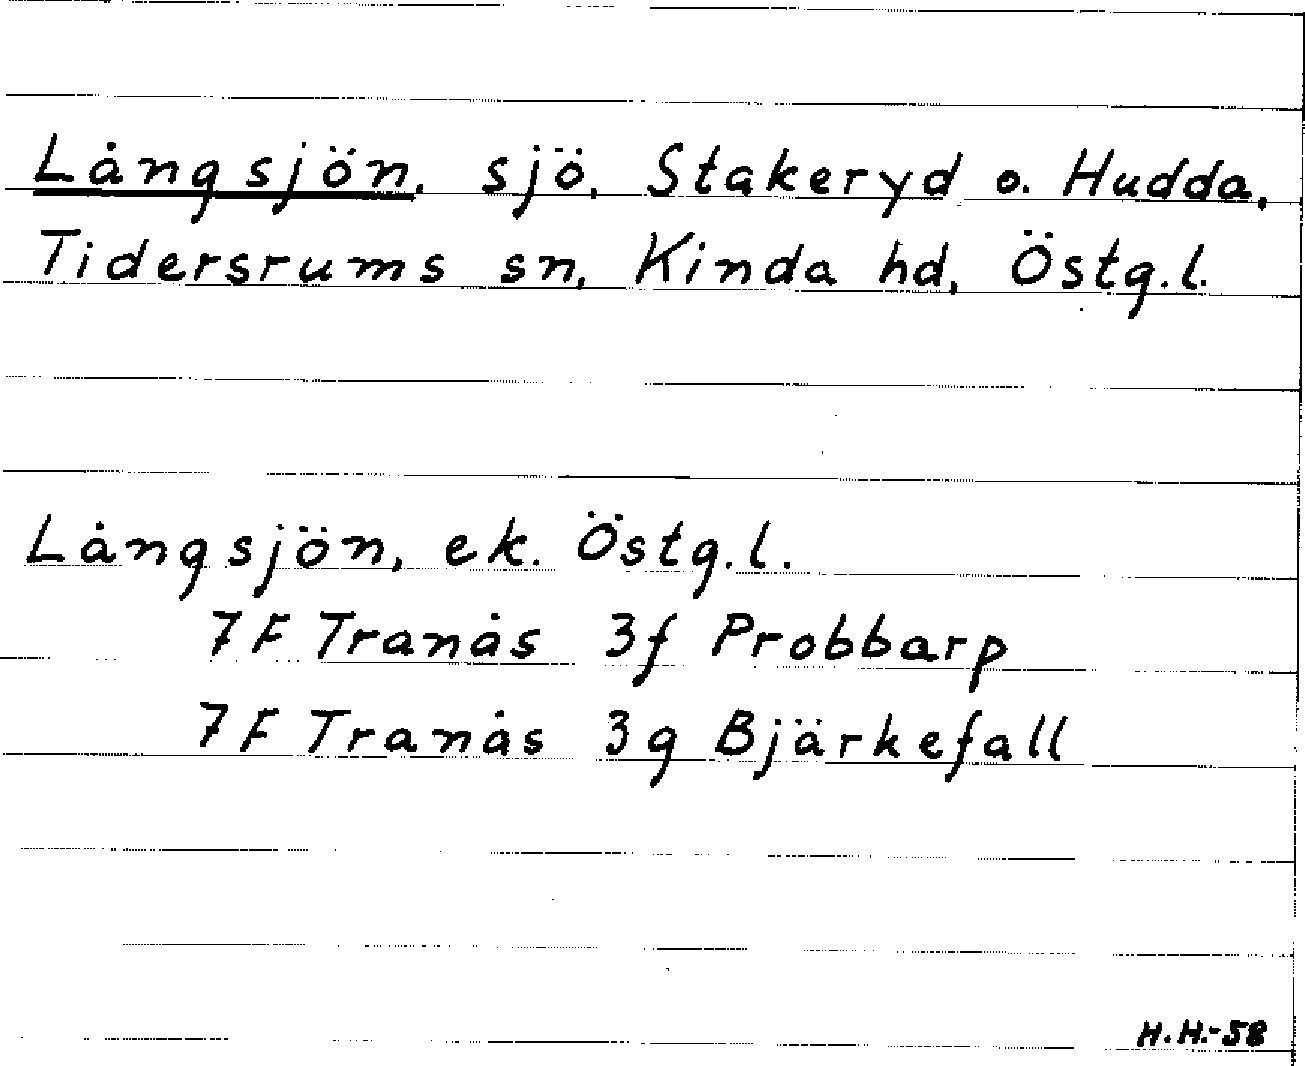 Långsjön, sjö, Stakeryd o. Hudda,
Tidersrums sn, Kinda hd, Östg.l.
Långsjön, ek. Östg.l.
7F Tranås 3f Probbarp
7F Tranås 3g Bjärkefall
H.H.-58